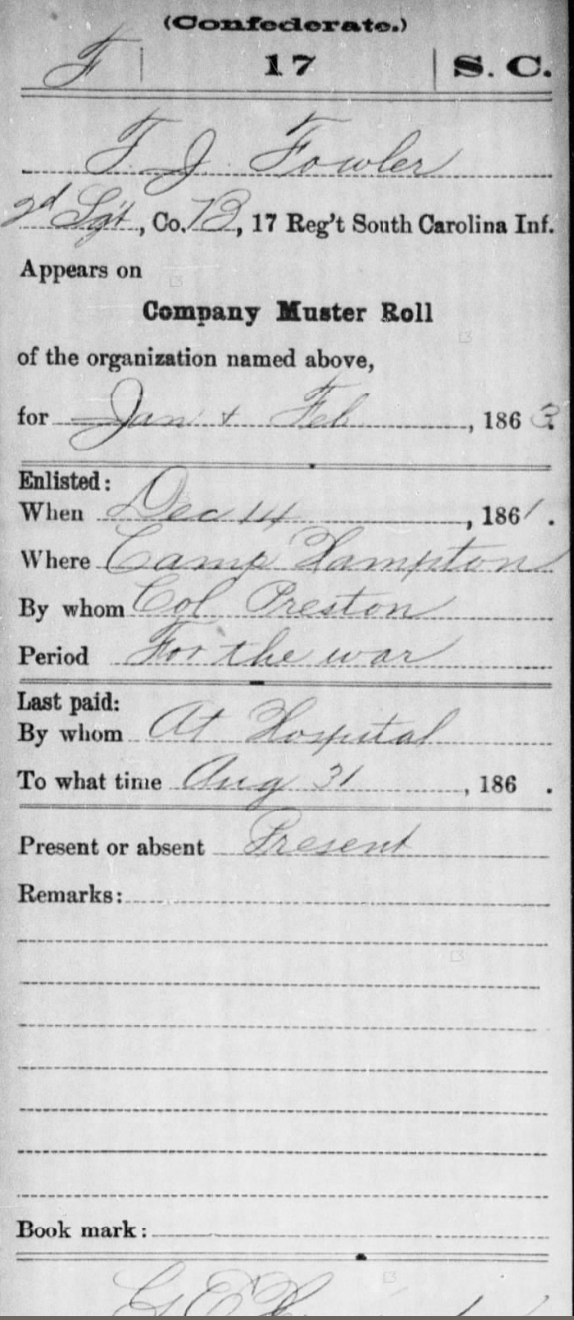 (Confederate.)
F | 17 | S. C.
T J Fowler
2d Sgt, Co. B, 17 Reg't South Carolina Inf.
Appears on
Company Muster Roll
of the organization named above,
for Jan & Feb, 1863.
Enlisted:
When Dec 14, 1861.
Where Camp Hampton
By whom Col Preston
Period For the war
Last paid:
By whom At Hospital
To what time Aug 31, 186 .
Present or absent Present
Remarks:
Book mark: